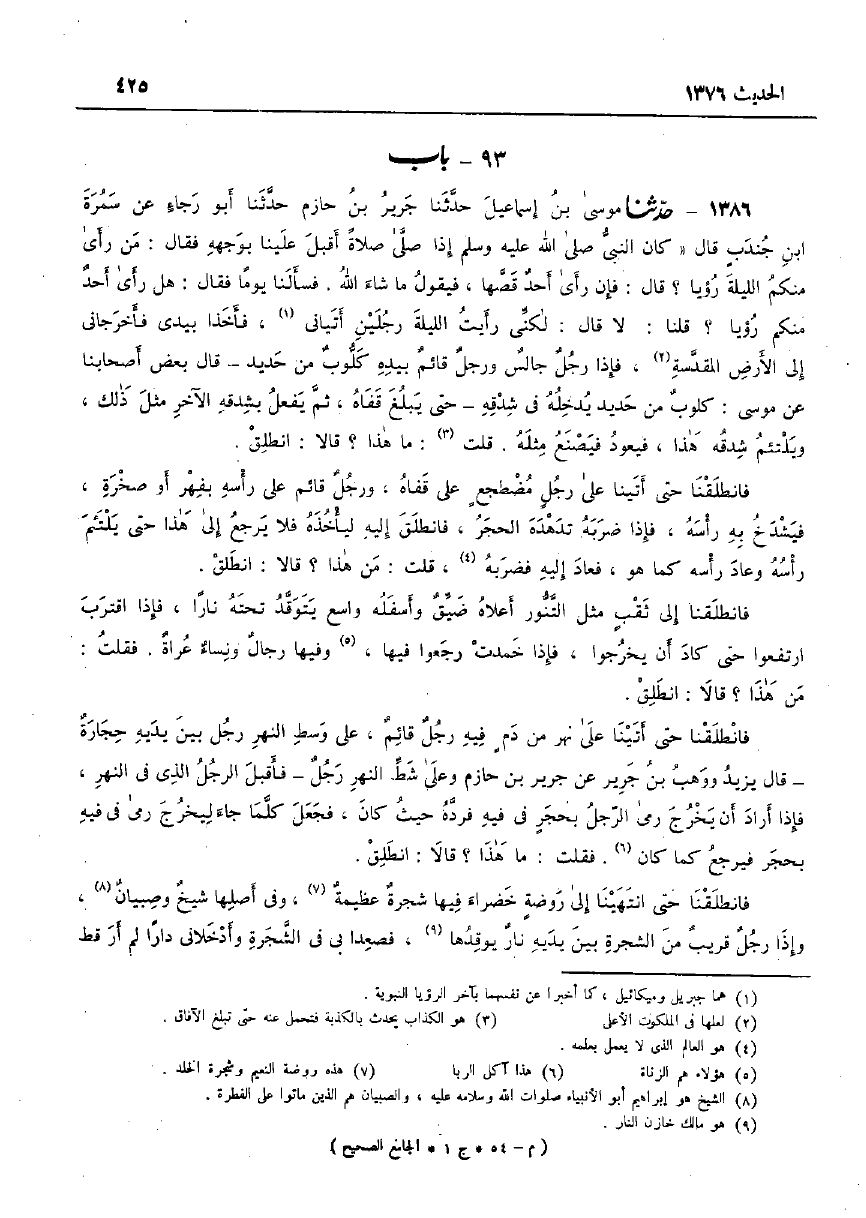 الحديث ١٣٧٦ ٤٢٥
٩٣ - باب
١٣٨٦ - حدّثنا موسىٰ بنُ إسماعيلَ حدَّثَنا جَريرُ بنُ حازم حدَّثَنا أبو رَجاءٍ عن سَمُرَةَ
ابنِ جُندَبٍ قال « كان النبيُّ صلىٰ الله عليه وسلم إذا صلَّىٰ صلاةً أقبلَ علَينا بوَجههِ فقال : مَن رأىٰ
منكمُ الليلةَ رُؤيا ؟ قال : فإن رأىٰ أحدٌ قَصَّها ، فيقولُ ما شاءَ اللهُ . فسألَنا يومًا فقال : هل رأىٰ أحدٌ
منكم رُؤيا ؟ قلنا : لا قال : لٰكنِّى رأيتُ الليلةَ رجلَيْنِ أتَيانى (١) ، فأخَذا بيدى فأخرَجانى
إلى الأرضِ المقدَّسةِ (٢) ، فإذا رجُلٌ جالسٌ ورجلٌ قائمٌ بيدِهِ كَلُّوبٌ من حَديد – قال بعض أصحابنا
عن موسى : كلوبٌ من حَديد يُدخِلُهُ فى شِدْقِهِ – حتى يَبلُغَ قَفَاهُ ، ثمَّ يَفعلُ بشِدقهِ الآخرِ مثلَ ذٰلك ،
ويَلْتئمُ شِدقُه هَٰذا ، فيعودُ فيَصْنَعُ مِثلَهُ . قلت (٣) : ما هٰذا ؟ قالا : انطلِقْ .
فانطلَقْنَا حتى أتَينا علىٰ رجُلٍ مُضْطجعٍ على قَفاهُ ، ورجُلٌ قائم على رأْسهِ بفِهْرٍ أو صخْرَةٍ ،
فيَشْدَخُ بهِ رأسَهُ ، فإذا ضرَبَهُ تدَهْدَهَ الحجَرُ ، فانطلَقَ إليهِ ليأْخُذَهُ فلا يَرجعُ إلىٰ هَٰذا حتى يَلْتَئمَ
رأسُهُ وعادَ رأسه كما هو ، فعادَ إليهِ فضرَبهُ (٤) ، قلت : مَن هٰذا ؟ قالا : انطَلِقْ .
فانطلَقنا إلى ثَقْبٍ مثل التَّنُّور أعلاهُ ضَيِّقٌ وأسفلُه واسع يَتَوَقَّدُ تحتَهُ نارًا ، فإذا اقترَبَ
ارتفعوا حتى كادَ أن يخرُجوا ، فإذا خَمدتْ رجَعوا فيها ، (٥) وفيها رجالٌ ونِساءٌ عُراةٌ . فقلتُ :
مَن هَٰذَا ؟ قالَا : انطَلِقْ .
فانْطلَقْنا حتى أتَيْنَا علَىٰ نهرٍ من دَمٍ فِيهِ رجُلٌ قائِمٌ ، على وَسطِ النهرِ رجُل بينَ يدَيهِ حِجارَةٌ
– قال يزيدُ ووَهبُ بنُ جَرير عن جرير بن حازم وعلىٰ شَطِّ النهرِ رَجُلٌ – فأقبلَ الرجلُ الذى فى النهرِ ،
فإذا أرادَ أن يَخْرُجَ رمىٰ الرّجلُ بحجَرٍ فى فيهِ فردَّهُ حيثُ كانَ ، فجَعَلَ كلَّمَا جاءَ ليخرُجَ رمىٰ فى فيهِ
بحجَر فيرجعُ كما كان (٦) . فقلت : ما هَٰذَا ؟ قالَا : انطَلِقْ .
فانطلَقْنَا حتى انتهَيْنَا إلىٰ رَوضةٍ خَضراءَ فيها شجرةٌ عظيمةٌ (٧) ، وفى أصلِها شيخٌ وصِبيانٌ (٨) ،
وإذَا رجُلٌ قريبٌ منَ الشجرةِ بينَ يدَيهِ نارٌ يوقِدُها (٩) ، فصعِدا بى فى الشَّجَرةِ وأدْخَلانى دارًا لم أرَ قط
(١) هما جبريل وميكائيل ، كما أخبرا عن نفسهما بآخر الرؤيا النبوية .
(٢) لعلها فى الملكوت الأعلى (٣) هو الكذاب يحدث بالكذبة فتحمل عنه حتى تبلغ الآفاق .
(٤) هو العالم الذى لا يعمل بعلمه .
(٥) هؤلاء هم الزناة (٦) هذا آكل الربا (٧) هذه روضة النعيم وشجرة الخلد .
(٨) الشيخ هو إبراهيم أبو الأنبياء صلوات الله وسلامه عليه ، والصبيان هم الذين ماتوا على الفطرة .
(٩) هو مالك خازن النار .
( م – ٥٤ * ج ١ * الجامع الصحيح )